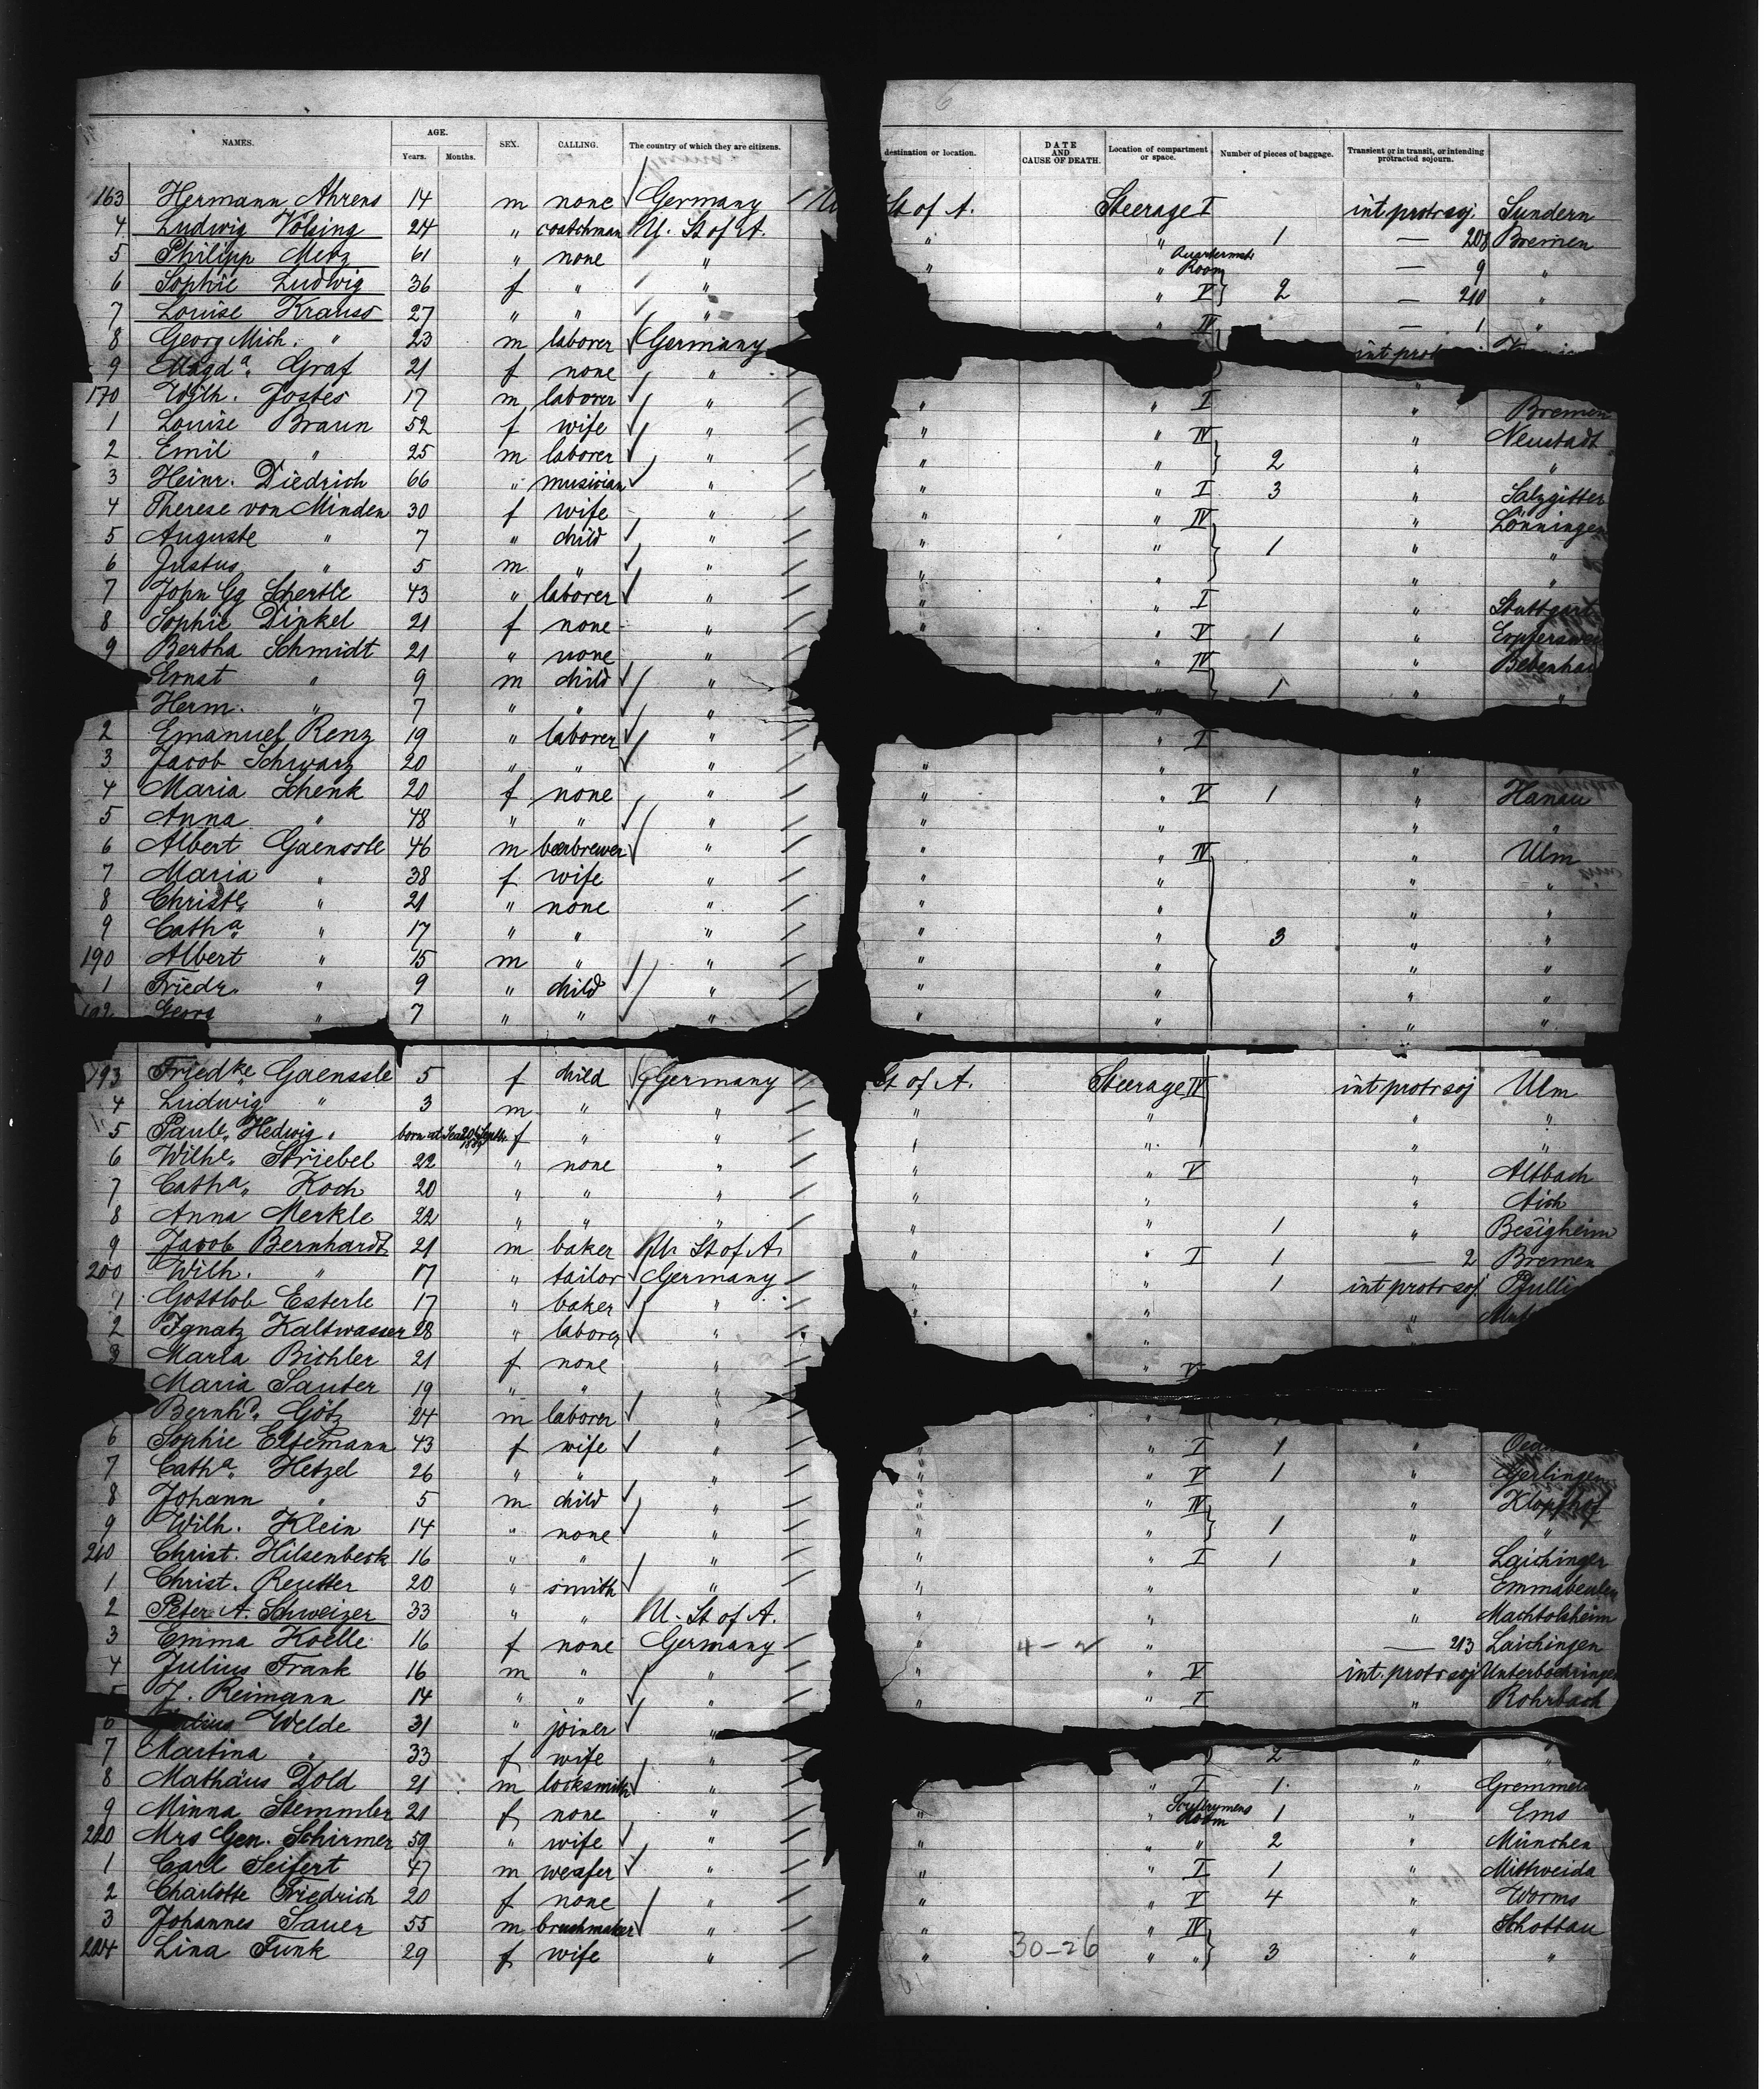 NAMES. AGE. Years. Months. SEX. CALLING. The country of which they are citizens. destination or location. DATE AND CAUSE OF DEATH. Location of compartment or space. Number of pieces of baggage. Transient or in transit, or intending protracted sojourn.
163 Hermann Ahrens 14 m none Germany St of A. Steerage I int protr soj. Sundern
4 Ludwig Völsing 24 " coatchman U. St of A. " " 1 — 208 Bremen
5 Philipp Merz 61 " none " " " Room — 9 "
6 Sophie Ludwig 36 f " " " V 2 — 210 "
7 Louise Krauss 27 " " " " IV — 1 "
8 Georg Mich. " 23 m laborer Germany int prot
9 Magda. Graf 21 f none " "
170 Wilh. Jostes 17 m laborer " " " I " Bremen
1 Louise Braun 52 f wife " " " IV " Neustadt
2 Emil " 25 m laborer " " " 2 " "
3 Heinr. Diedrich 66 " musician " " " I 3 " Salzgitter
4 Therese von Minden 30 f wife " " " IV " Lönningen
5 Auguste " 7 " child " " " 1 " "
6 Justus " 5 m " " " " " "
7 John Gg Schertle 43 " laborer " " " I " Stuttgart
8 Sophie Dinkel 21 f none " " " V 1 "
9 Bertha Schmidt 21 " none " " IV " Bebenhau
Ernst " 9 m child " " 1 " "
Herm. " 7 " " "
2 Emanuel Renz 19 " laborer " " I
3 Jacob Schwarz 20 " " " " " "
4 Maria Schenk 20 f none " " " V 1 " Hanau
5 Anna " 48 " " " " " " "
6 Albert Gaenssle 46 m beerbrewer " " " IV " Ulm
7 Maria " 38 f wife " " " " "
8 Christe. " 21 " none " " " " "
9 Catha. " 17 " " " " " 3 " "
190 Albert " 15 m " " " " " "
1 Friedr. " 9 " child " " " " "
192 Georg " 7 " " " " " " "
193 Friedke. Gaenssle 5 f child Germany St of A. Steerage IV int protr soj Ulm
4 Ludwig " 3 m " " " " " "
5 Paule. Hedwig " born at Sea 20th Septbr f " " " " " "
6 Wilhe. Striebel 22 " none " " " V " Altbach
7 Catha. Koch 20 " " " " " " Aich
8 Anna Merkle 22 " " " " " 1 " Besigheim
9 Jacob Bernhardt 21 m baker U. St of A. " " I 1 — 2 Bremen
200 Wilh. " 17 " tailor Germany " " 1 int protr soj Pfulli
1 Gottlob Esterle 17 " baker " " " "
2 Ignatz Kaltwasser 28 " laborer " "
3 Maria Bichler 21 f none " " V
Maria Sauter 19 " " "
Bernhd. Götz 24 m laborer "
6 Sophie Eltemann 43 f wife " " " I 1 "
7 Catha. Hetzel 26 " " " " " V 1 " Gerlingen
8 Johann " 5 m child " " " IV " Klopfhof
9 Wilh. Klein 14 " none " " " 1 " "
210 Christ. Hilsenbeck 16 " " " " " I 1 " Laichingen
1 Christ. Reutter 20 " smith " " " "
2 Peter A. Schweizer 33 " " U. St of A. " " " Machtolsheim
3 Emma Koelle 16 f none Germany " " — 213 Laichingen
4 Julius Frank 16 m " " " " V int. protr soj Unterboehringen
J. Reimann 14 " " " " " I " Rohrbach
6 Julius Welde 31 " joiner "
7 Martina " 33 f wife " 2 " "
8 Mathäus Dold 21 m locksmith " " I 1 " Gremmels
9 Minna Stemmler 21 f none " " " Room 1 " Ems
220 Mrs Gen. Schirmer 59 " wife " " " " 2 " München
1 Carl Seifert 47 m weafer " " " I 1 " Mithweida
2 Charlotte Friedrich 20 f none " " " V 4 " Worms
3 Johannes Sauer 55 m brushmaker " " " IV " Schottau
224 Lina Funk 29 f wife " " 30-26 " " 3 " "